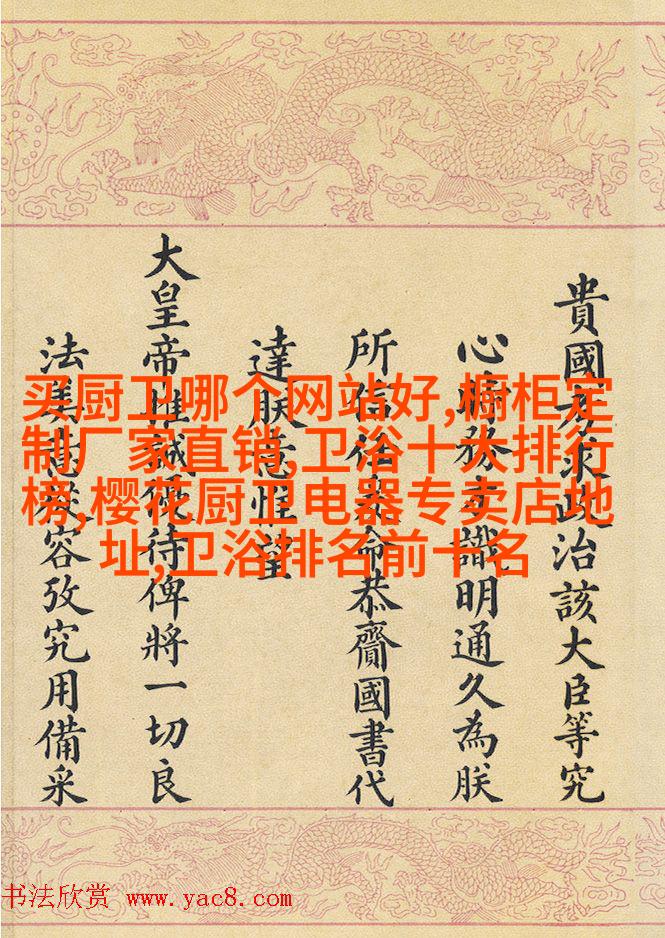 买厨卫哪个网站好,橱柜定
制厂家直销,卫浴十大排行
榜,樱花厨卫电器专卖店地
址,卫浴排名前十名
貴國考求治該大臣等究
心時務識明通久為朕
所信任命恭齎國書代
達朕意惟望
大皇帝推誠待俾將一切良
法美意容攷究用備采
书法欣赏 www.yac8.com